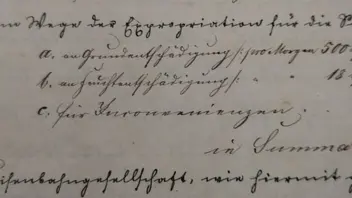 m Wege der Expropriation für die S
a. an Grundentschädigung /: pro Morgen 500
b. an Fruchtentschädigung /: " " 18
c. für Inconvenienzen.
in Summa
isenbahngesellschaft, wie hiermit g